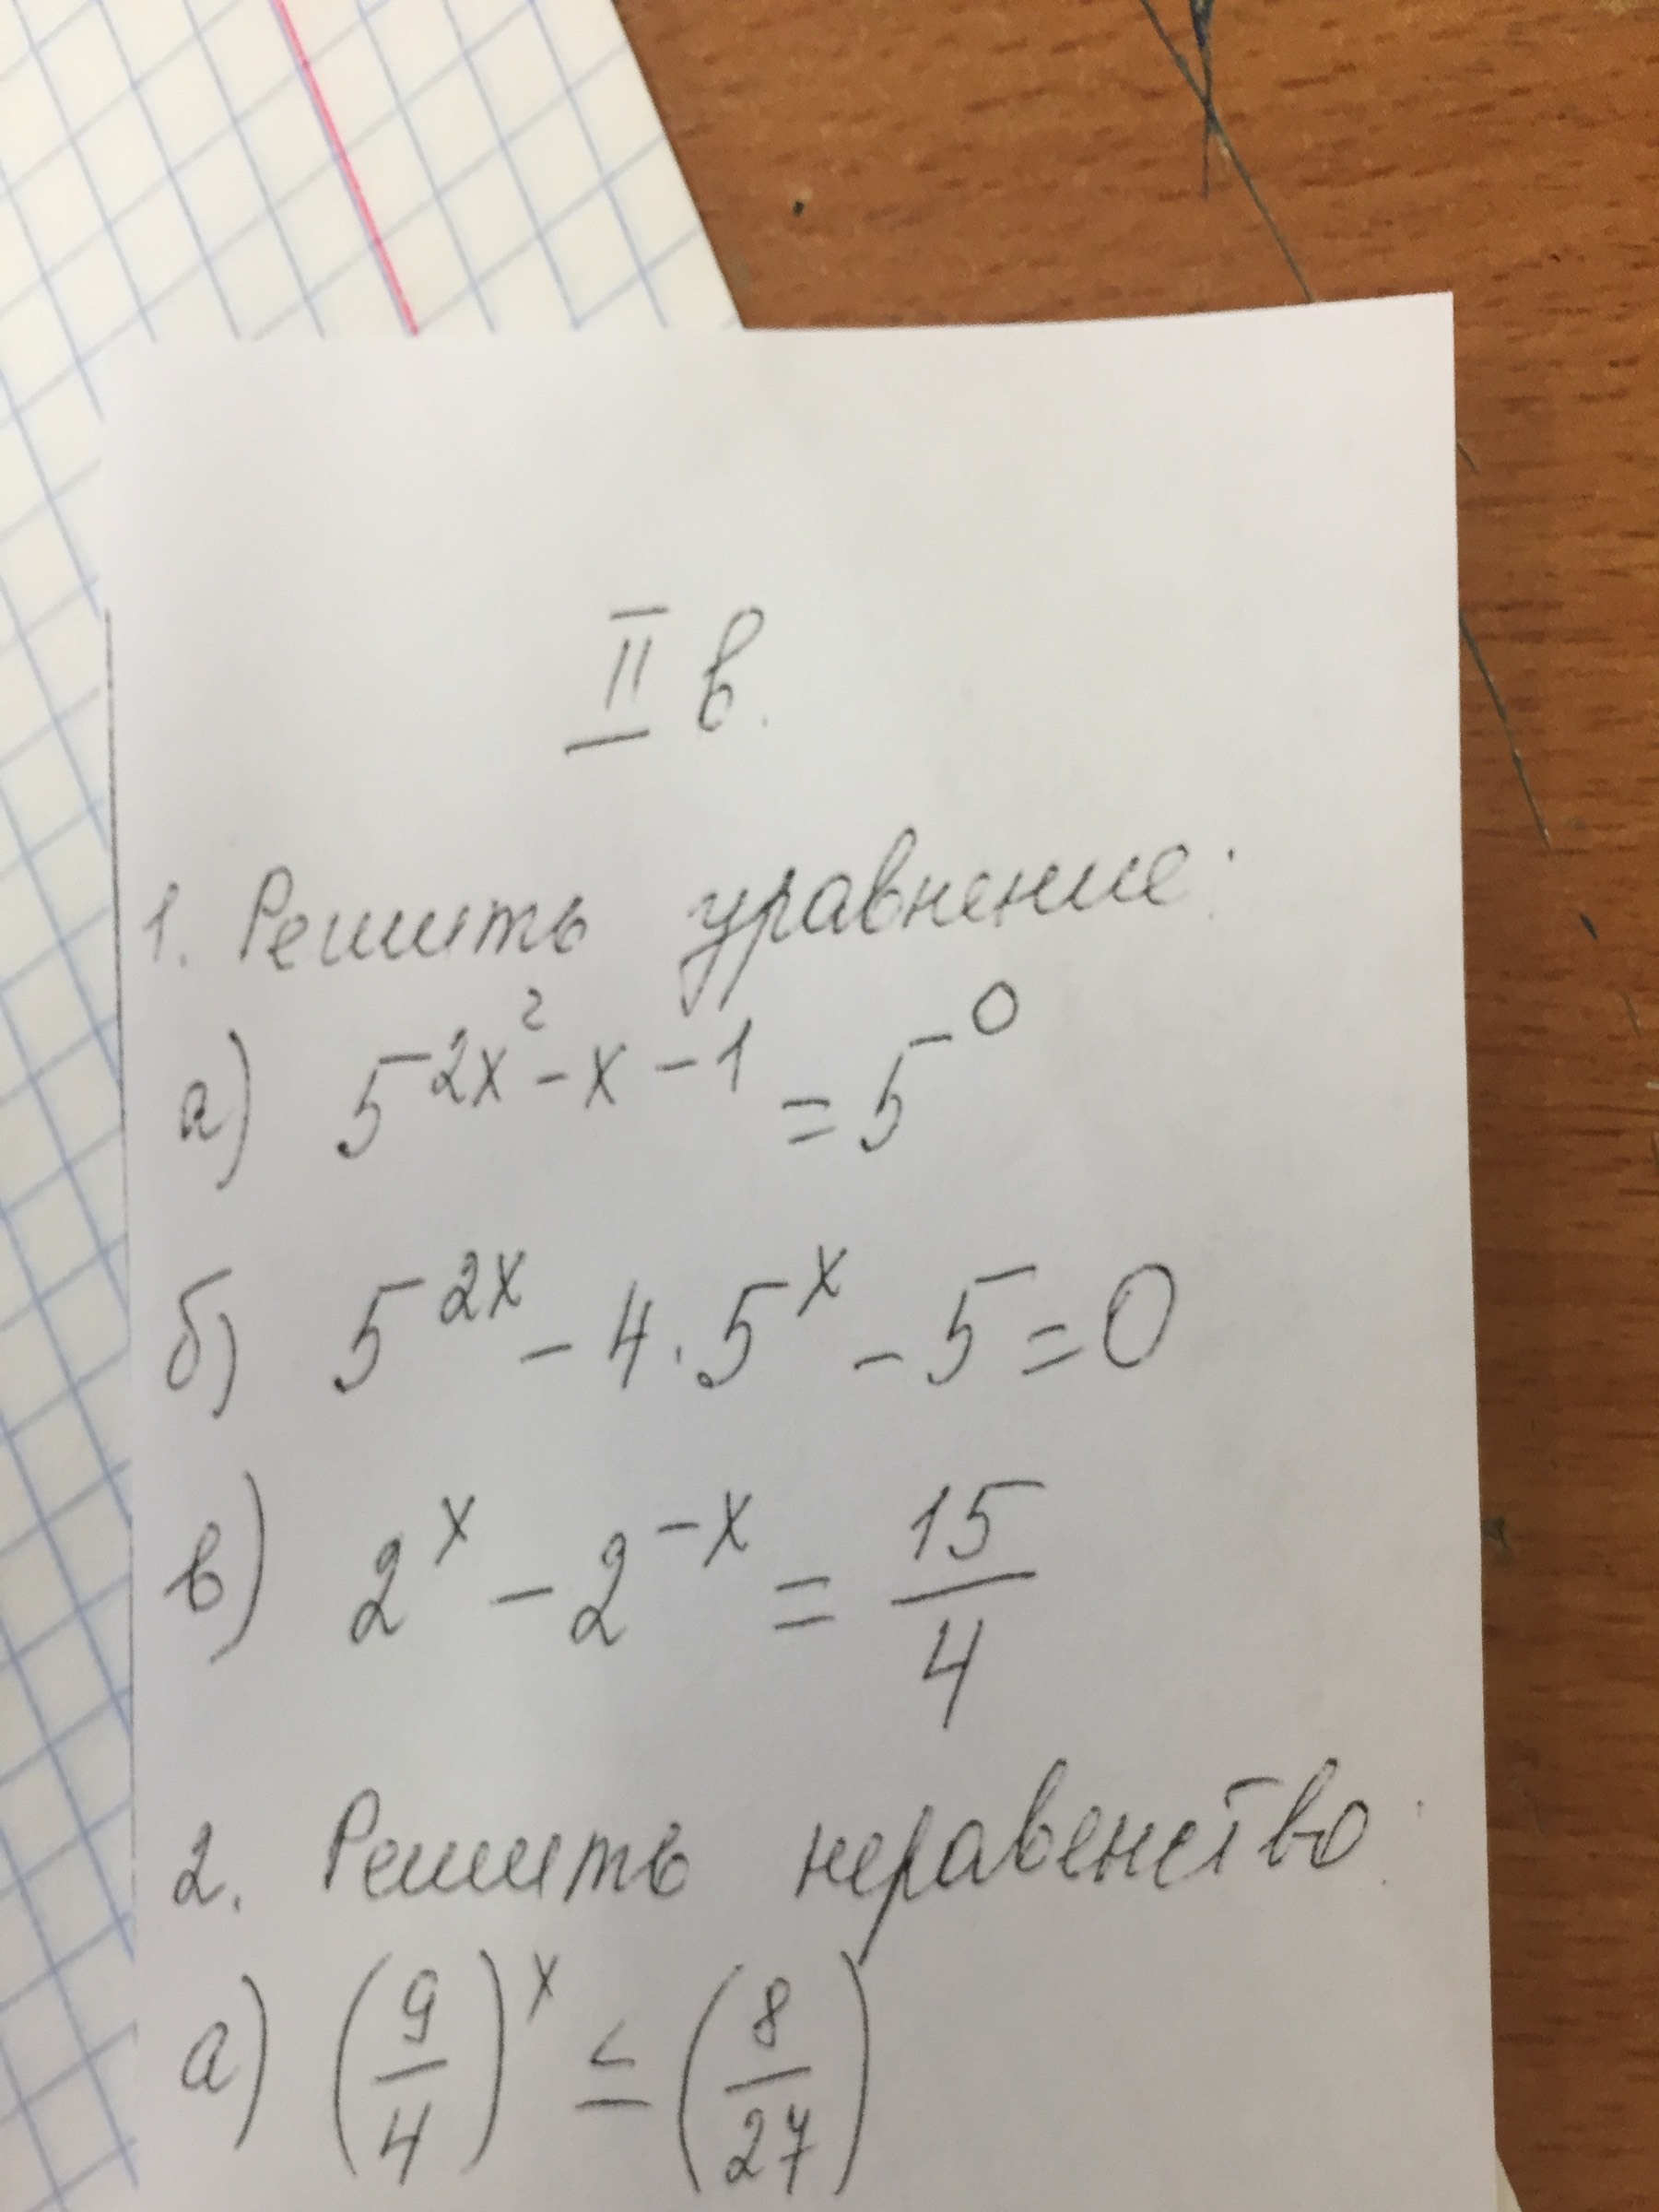 II в.
1. Решить уравнение:
а) 5^{2x²-x-1} = 5^0
б) 5^{2x} - 4 · 5^x - 5 = 0
в) 2^x - 2^{-x} = 15/4
2. Решить неравенство:
а) (9/4)^x ≤ (8/27)